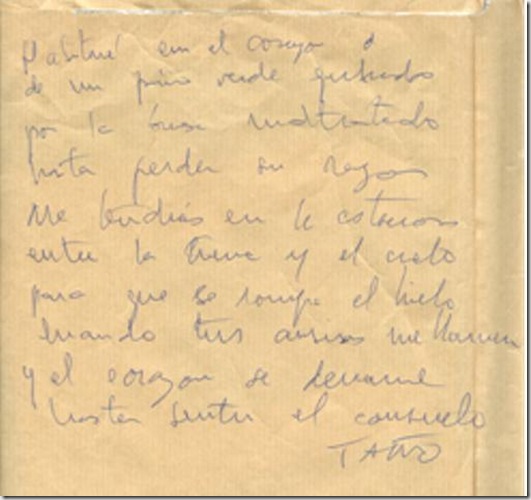 en el corazon
de un pino verde quebrado
por la brisa maltratado
hasta perder su razon
Me tendrás en la estacion
entre la tierra y el cielo
para que se rompa el hielo
cuando tus ansias me llamen
y el corazon se derrame
hasta sentir el consuelo